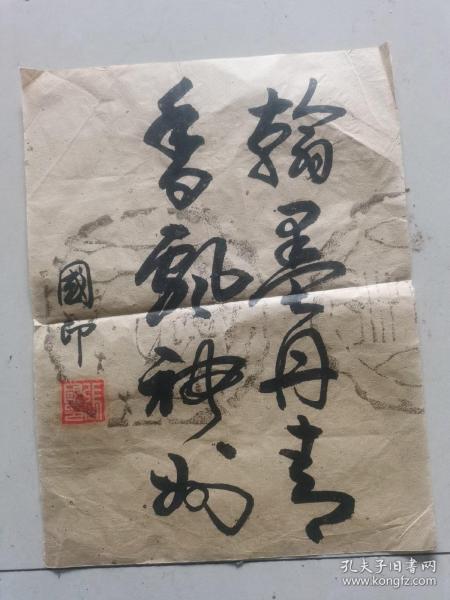 翰墨丹青
香飘神州
國印
孔夫子旧书网
www.kongfz.com